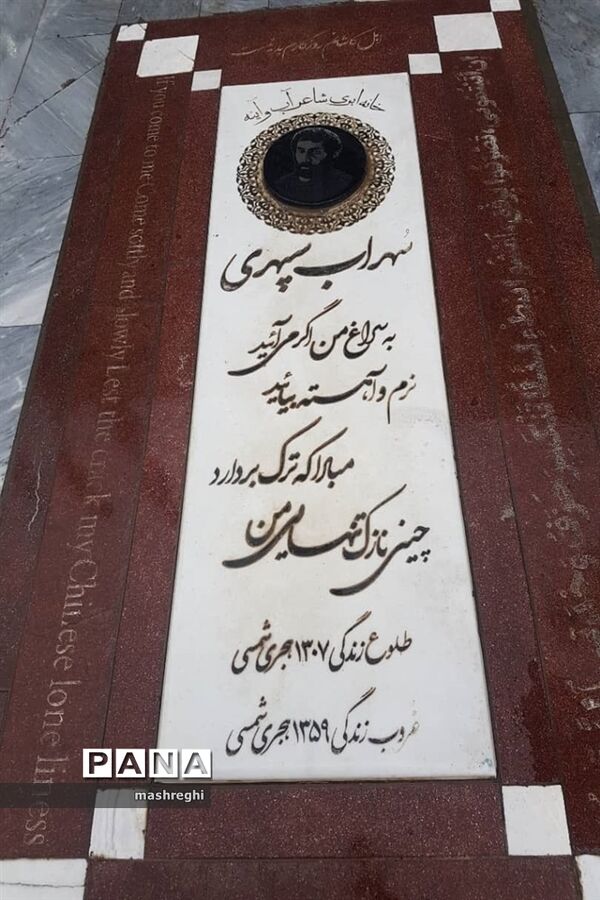 اهل کاشانم روزگارم بد نیست
خانه ابدی شاعر آب و آینه
سُهراب سپهری
به سراغ من اگر می آئید
نرم و آهسته بیائید
مبادا که ترک بردارد
چینی نازک تنهایی من
طلوع زندگی ۱۳۰۷ هجری شمسی
غروب زندگی ۱۳۵۹ هجری شمسی
If you come to me Come softly and slowly Let the crack in my Chinese loneliness
PANA
mashreghi